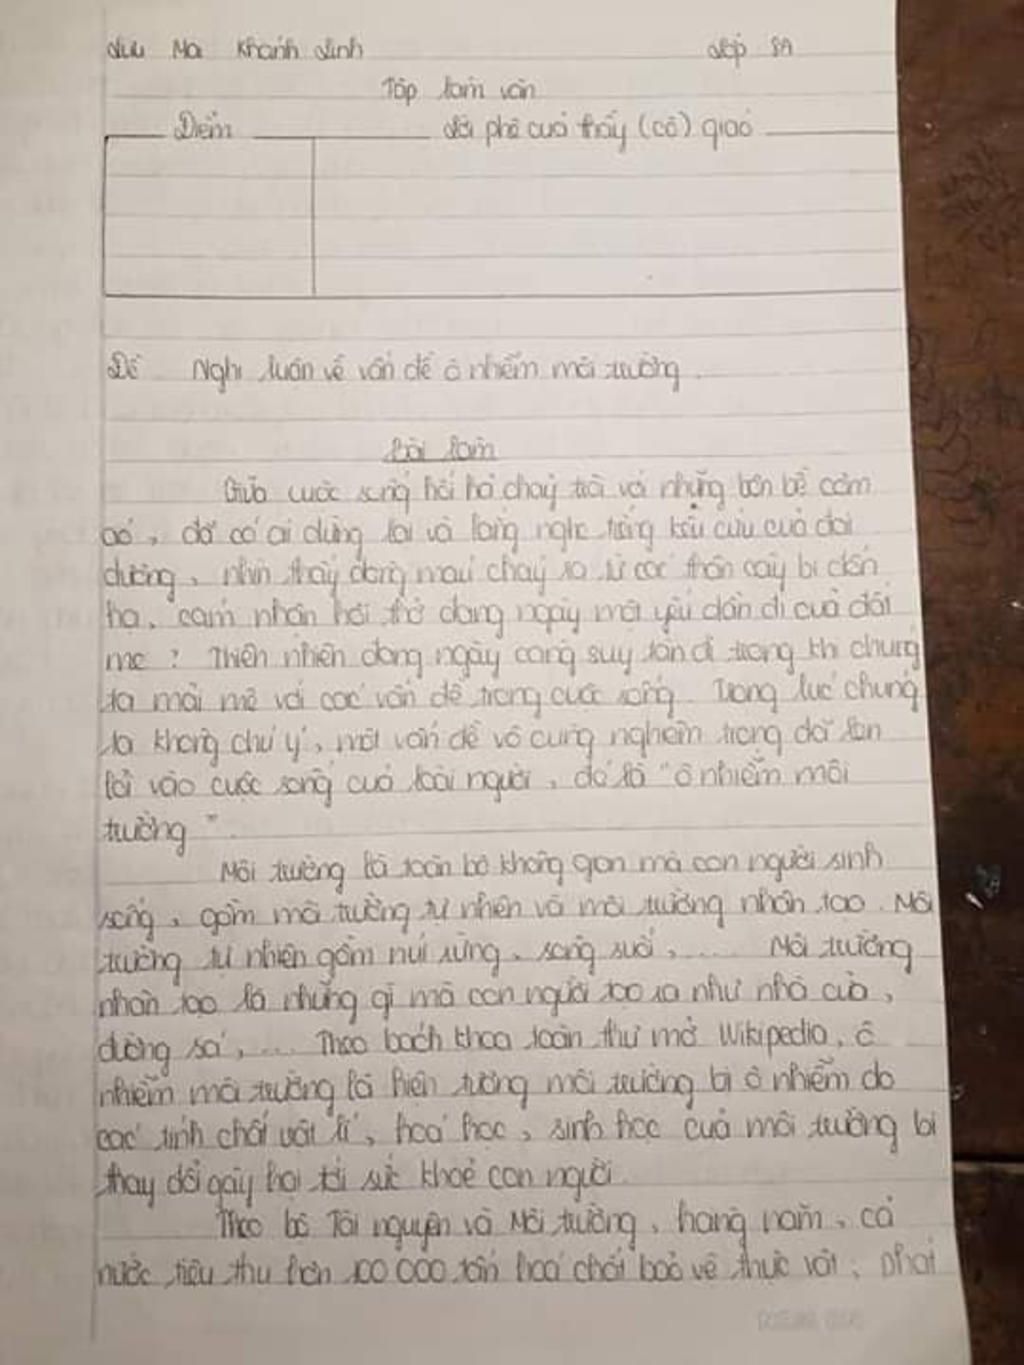 Lưu Mai Khánh Linh Lớp 8A
Tập làm văn
Điểm Lời phê của thầy (cô) giáo
Đề Nghị luận về vấn đề ô nhiễm môi trường.
Bài làm
Giữa cuộc sống hối hả chạy trôi với những bộn bề cơm
áo, đã có ai dừng lại và lắng nghe tiếng kêu cứu của đại
dương, nhìn thấy dòng máu chảy ra từ các thân cây bị đốn
hạ, cảm nhận hơi thở đang ngày một yếu dần đi của đất
mẹ ? Thiên nhiên đang ngày càng suy tàn đi trong khi chúng
ta mải mê với các vấn đề trong cuộc sống. Trong lúc chúng
ta không chú ý, một vấn đề vô cùng nghiêm trọng đã len
lỏi vào cuộc sống của loài người, đó là "ô nhiễm môi
trường".
Môi trường là toàn bộ không gian mà con người sinh
sống, gồm môi trường tự nhiên và môi trường nhân tạo. Môi
trường tự nhiên gồm núi rừng, sông suối,.... Môi trường
nhân tạo là những gì mà con người tạo ra như nhà cửa,
đường sá,... Theo bách khoa toàn thư mở Wikipedia, ô
nhiễm môi trường là hiện tượng môi trường bị ô nhiễm do
các tính chất vật lí, hoá học, sinh học của môi trường bị
thay đổi gây hại tới sức khoẻ con người.
Theo bộ Tài nguyên và Môi trường, hàng năm, cả
nước tiêu thụ hơn 100 000 tấn hoá chất bảo vệ thực vật, phát